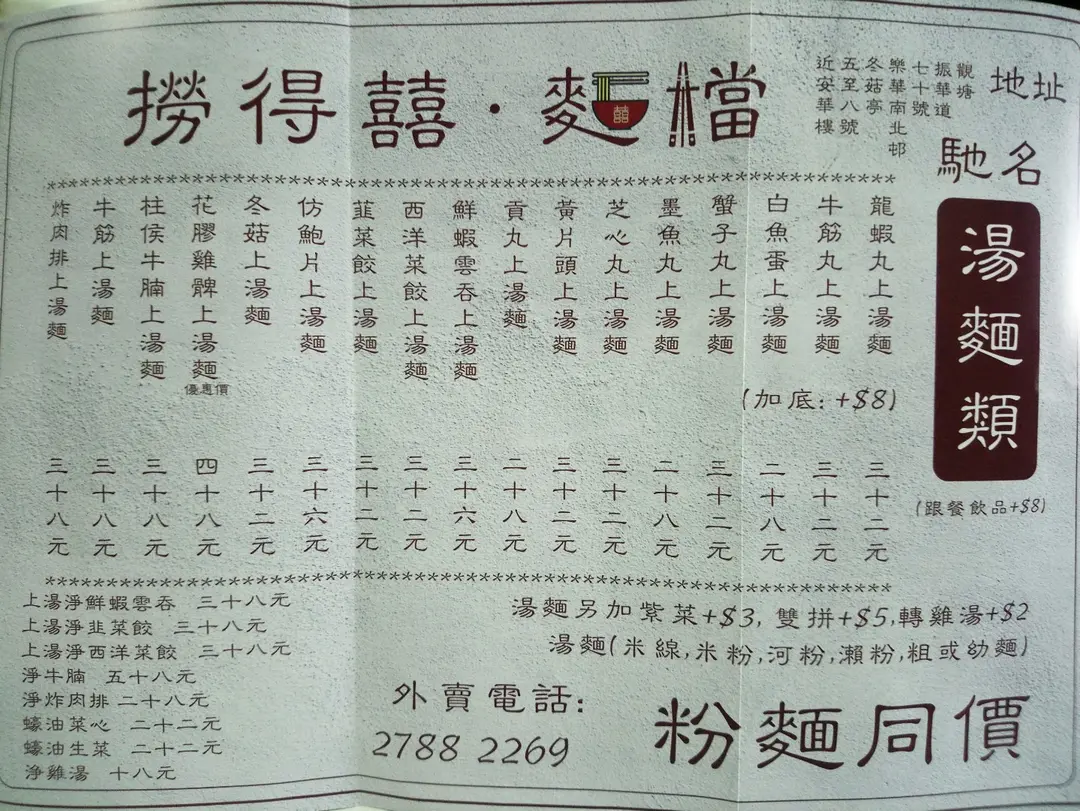 撈得囍·麵檔
地址
觀塘
振華道
七十號
樂華南北邨
冬菇亭
五至八號
近安華樓
馳名
湯麵類
(跟餐飲品+$8)
龍蝦丸上湯麵 三十二元
牛筋丸上湯麵 三十二元
白魚蛋上湯麵 二十八元
蟹子丸上湯麵 三十二元
墨魚丸上湯麵 二十八元
芝心丸上湯麵 三十二元
黃片頭上湯麵 三十二元
貢丸上湯麵 二十八元
鮮蝦雲吞上湯麵 三十六元
西洋菜餃上湯麵 三十二元
韮菜餃上湯麵 三十二元
仿鮑片上湯麵 三十六元
冬菇上湯麵 三十二元
花膠雞髀上湯麵 優惠價 四十八元
柱侯牛腩上湯麵 三十八元
牛筋上湯麵 三十八元
炸肉排上湯麵 三十八元
(加底: +$8)
上湯淨鮮蝦雲吞 三十八元
上湯淨韮菜餃 三十八元
上湯淨西洋菜餃 三十八元
淨牛腩 五十八元
淨炸肉排 二十八元
蠔油菜心 二十二元
蠔油生菜 二十二元
淨雞湯 十八元
湯麵另加紫菜+$3, 雙拼+$5,轉雞湯+$2
湯麵(米線,米粉,河粉,瀨粉,粗或幼麵)
外賣電話:
2788 2269
粉麵同價